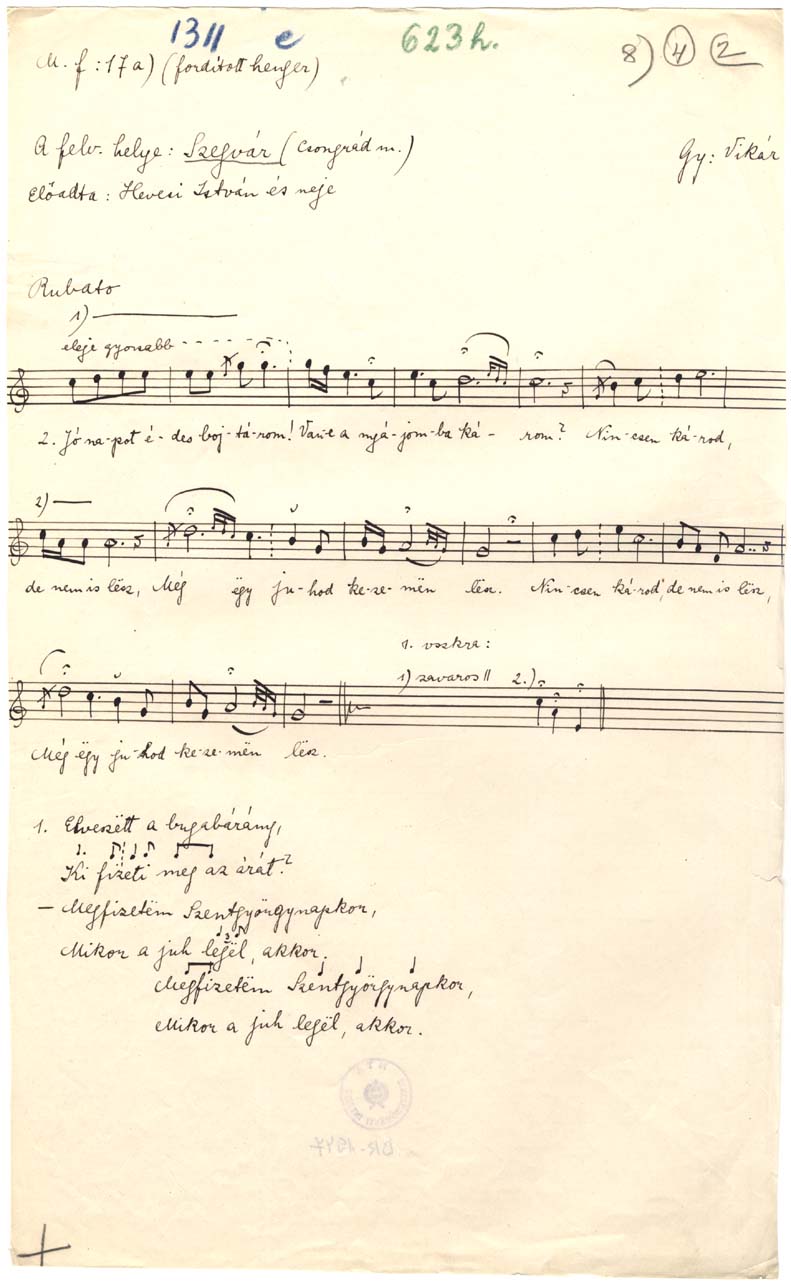 1311 e 623h.
M. f : 17 a) (fordított henger) 8) 4 2
A felv. helye: Szegvár (Csongrád m.) Gy: Vikár
Előadta : Hevesi István és neje
Rubato
1)
eleje gyorsabb
2. Jó na-pot é-des boj-tá-rom! Van-e a nyá-jom-ba ká-rom? Nin-csen ká-rod,
2)
de nem is lësz, Még ëgy ju-hod ke-ze-mën lësz. Nin-csen ká-rod, de nem is lësz,
1. vszkra:
1) zavaros || 2.)
Még ëgy ju-hod ke-ze-mën lësz.
1. Elveszëtt a bugabárány,
Ki fizeti meg az árát?
– Megfizetëm Szentgyörgynapkor,
Mikor a juh legël, akkor.
3
Megfizetëm Szentgyörgynapkor,
Mikor a juh legël, akkor.